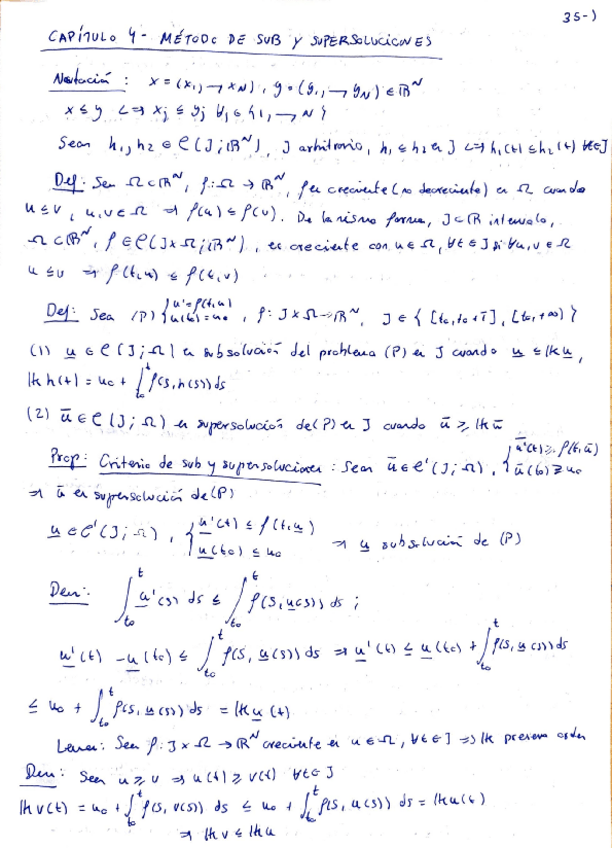 35-)
CAPÍTULO 4 - MÉTODO DE SUB Y SUPERSOLUCIONES
Notación : x = (x₁, → x_N), y = (y₁, → y_N) ∈ ℝ^N
x ≤ y <=> x_j ≤ y_j ∀j ∈ {1, → N}
Sean h₁, h₂ ∈ C(J; ℝ^N), J arbitrario, h₁ ≤ h₂ en J <=> h₁(t) ≤ h₂(t) ∀t∈J
Def: Sea Ω⊂ℝ^N, f: Ω → ℝ^N, f es creciente (no decreciente) en Ω cuando
u ≤ v, u, v ∈ Ω => f(u) ≤ f(v). De la misma forma, J⊂ℝ intervalo,
Ω⊂ℝ^N, f ∈ C(J×Ω; ℝ^N), es creciente con u ∈ Ω, ∀t∈J si ∀u, v ∈ Ω
u ≤ v => f(t,u) ≤ f(t,v)
Def: Sea (P) { u' = f(t,u) u(t₀) = u₀ , f: J×Ω → ℝ^N, J ∈ { [t₀, t₀+T], [t₀, +∞) }
(1) u̲ ∈ C(J; Ω) es subsolución del problema (P) en J cuando u̲ ≤ 𝕂u̲,
𝕂h(t) = u₀ + ∫_{t₀}^{t} f(s, h(s)) ds
(2) ū ∈ C(J; Ω) es supersolución de (P) en J cuando ū ≥ 𝕂ū
Prop: Criterio de sub y supersoluciones : Sean ū ∈ C'(J; Ω), { ū'(t) ≥ f(t, ū) ū(t₀) ≥ u₀
=> ū es supersolución de (P)
u̲ ∈ C'(J; Ω), { u̲'(t) ≤ f(t, u̲) u̲(t₀) ≤ u₀ => u̲ subsolución de (P)
Dem: ∫_{t₀}^{t} u̲'(s) ds ≤ ∫_{t₀}^{t} f(s, u̲(s)) ds ;
u̲'(t) - u̲(t₀) ≤ ∫_{t₀}^{t} f(s, u̲(s)) ds => u̲'(t) ≤ u̲(t₀) + ∫_{t₀}^{t} f(s, u̲(s)) ds
≤ u₀ + ∫_{t₀}^{t} f(s, u̲(s)) ds = 𝕂u̲(t)
Lema: Sea f: J×Ω → ℝ^N creciente en u ∈ Ω, ∀t∈J => 𝕂 preserva orden
Dem: Sean u ≥ v => u(t) ≥ v(t) ∀t∈J
𝕂v(t) = u₀ + ∫_{t₀}^{t} f(s, v(s)) ds ≤ u₀ + ∫_{t₀}^{t} f(s, u(s)) ds = 𝕂u(t)
=> 𝕂v ≤ 𝕂u